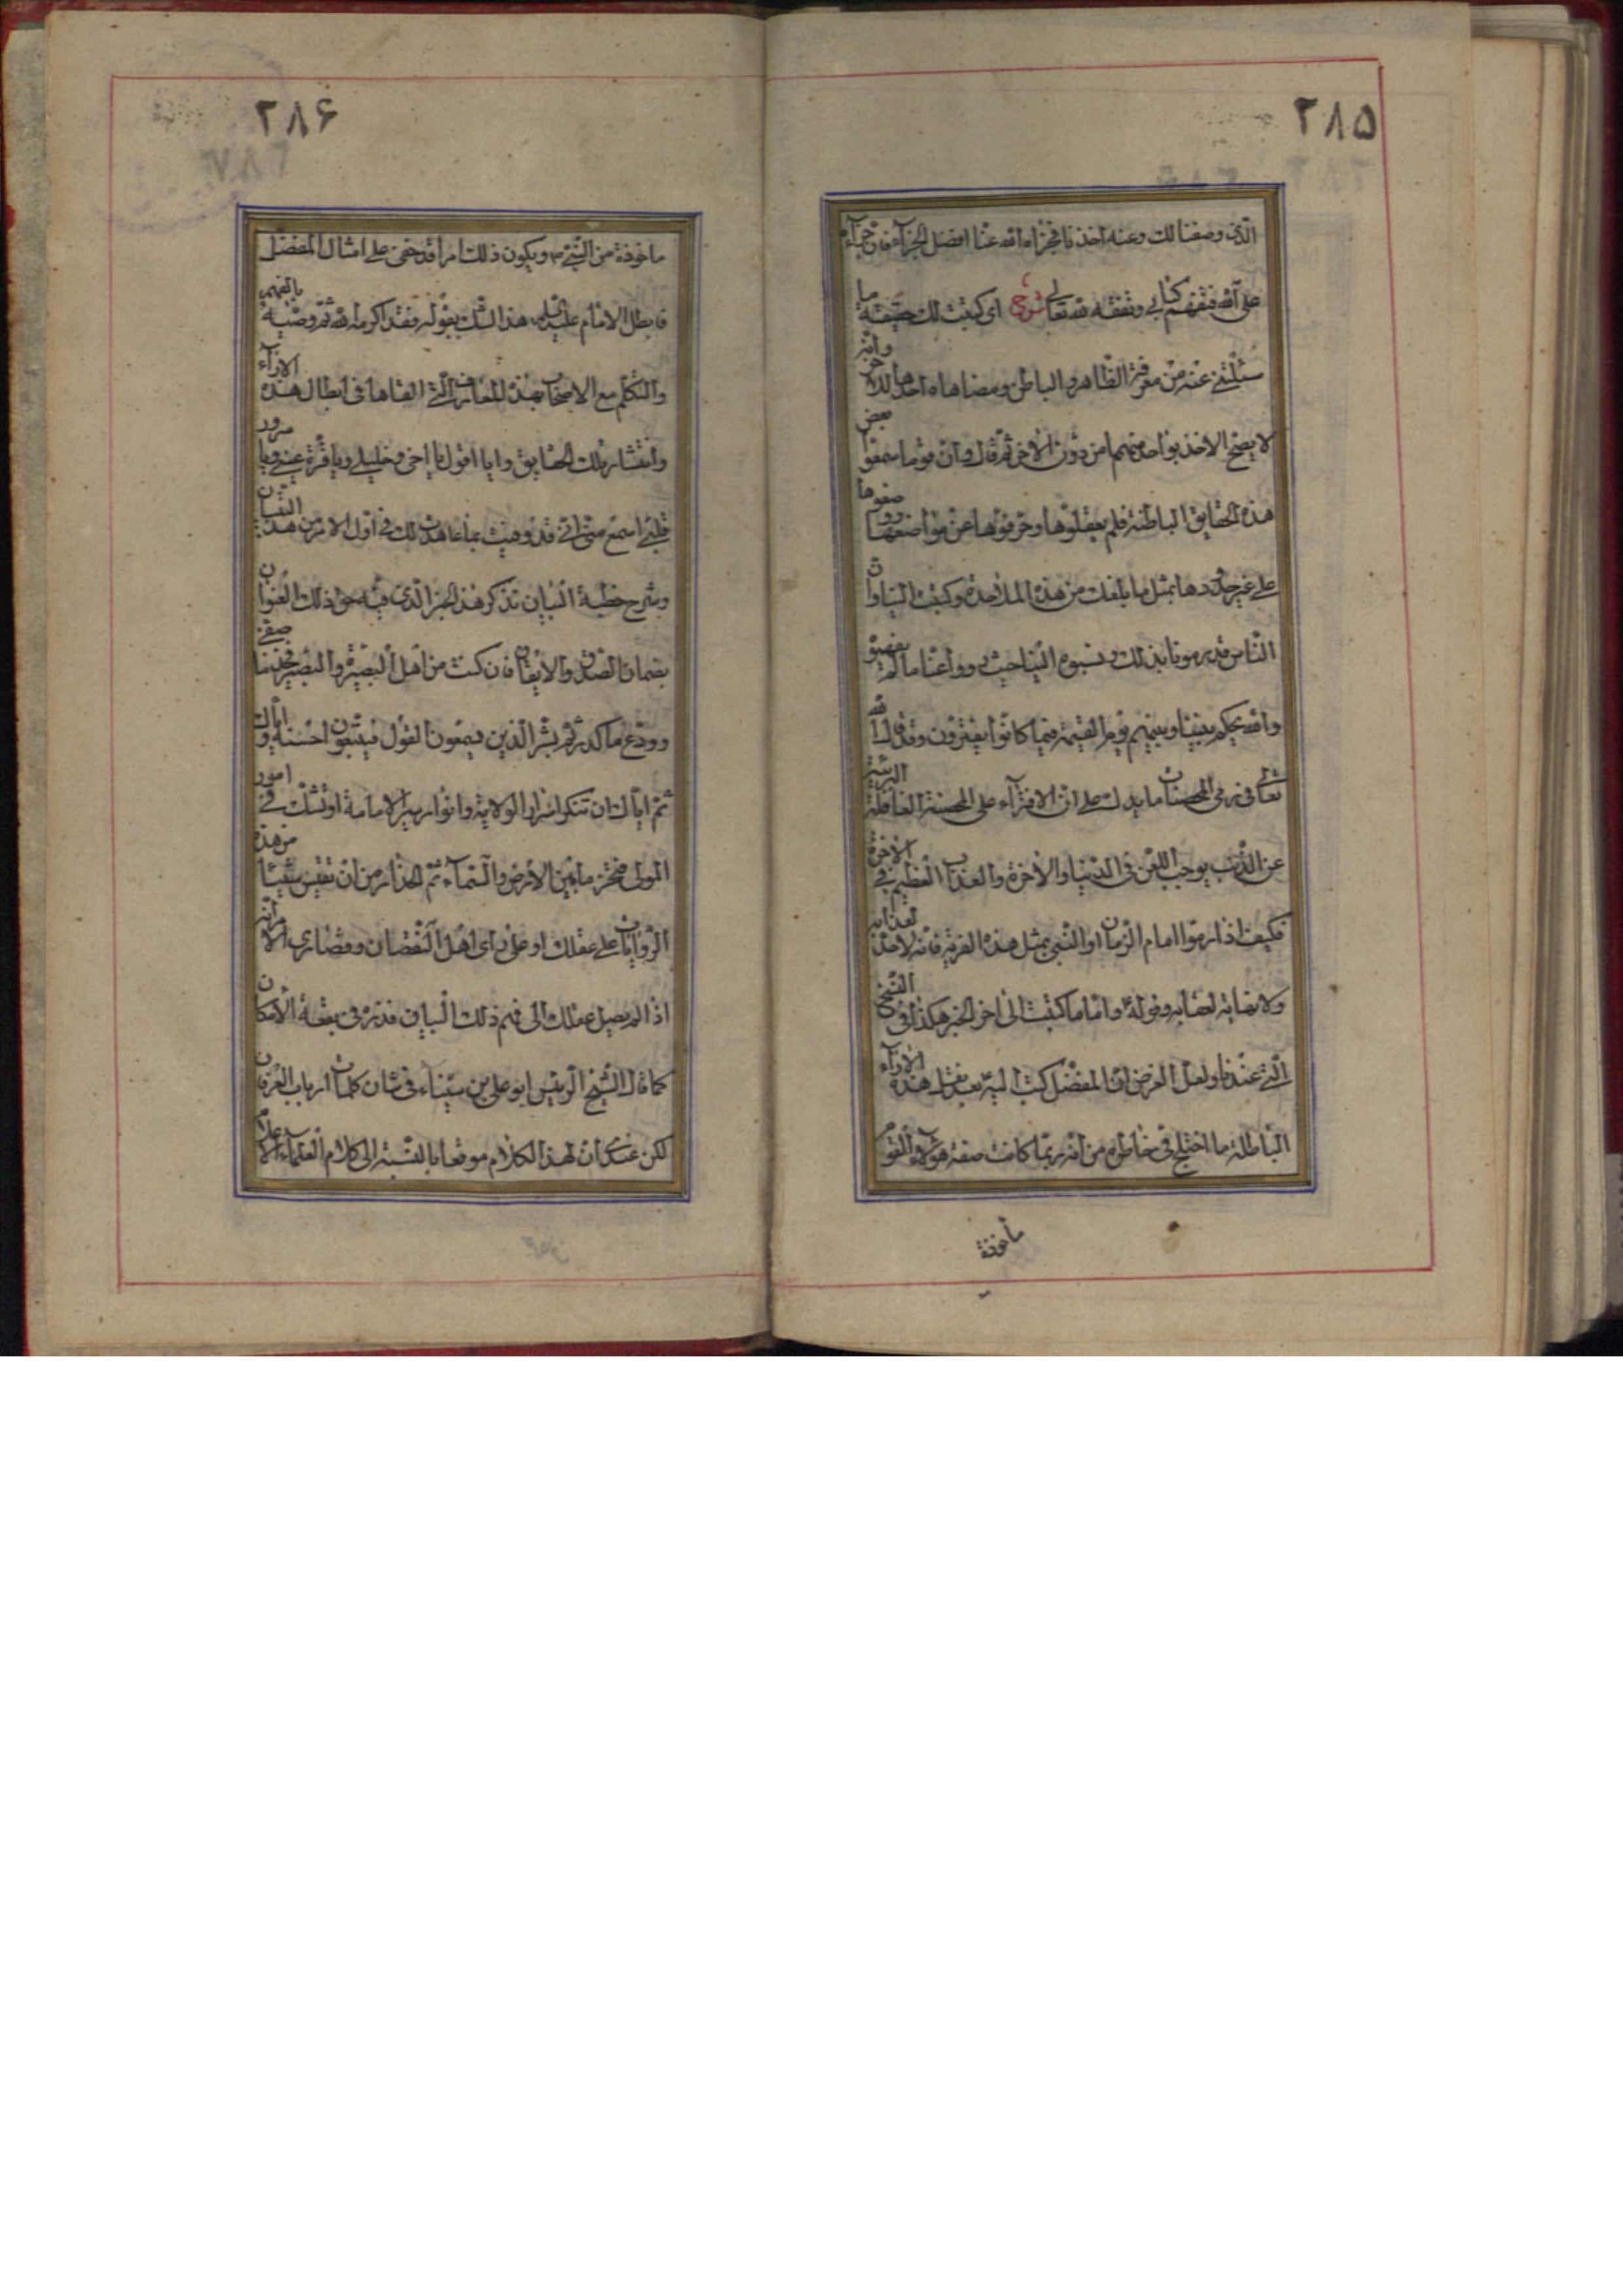 ٢٨۵
الذی وصفنا لك وعنه اخذنا فجزاه الله عنا افضل الجزآء فان جزآءه
على الله فتفهم كتابی وتفقه لله تعالى شرح ای كتبت لك حقيقة ما
سئلتنی عنه من معرفة الظاهر والباطن ومضاهاة احدهما للاخر وانه
لا يصح الاخذ بواحد منهما من دون الاخر ثم قال وان قوما سمعوا بعض
هذه الحقايق الباطنة فلم يعقلوها وحرفوها عن مواضعها ووضعوها
على غير حدودها بمثل ما بلغك من هذه الملاحدة وكتبت الينا وان
الناس قد يرمونا بذلك ونسبوه الينا حيث رووا عنا ما لم يفهموه
والله يحكم بيننا وبينهم يوم القيمة فيما كانوا يفترون وقد قال الله
تعالى فی رمی المحصنات ما يدل على ان الافتراء على المحصنة الغافلة البريئة
عن الذنب يوجب اللعن فی الدنيا والاخرة والعذاب العظيم فی الاخرة
فكيف اذا رموا امام الزمان او النبی بمثل هذه الفرية فانه لا حد لعذابه
ولا نهاية لعقابه وقوله واما ما كتبت الى اخر الخبر هكذا فی النسخ
التی عندنا ولعل الغرض ان المفضل كتب اليه بعد نقل هذه الاراء
الباطلة ما اختلج فی خاطره من انه ربما كانت صفة هؤلاء القوم
ماخوذة
٢٨۶
ماخوذة من النبی ص ويكون ذلك امرا قد خفی على امثال المفضل
فابطل الامام عليه السلم هذا الشك بقوله فقد اكرمه الله ثم وصيه بالتفهم
والتكلم مع الاصحاب بهذه المعارف التی القاها فی ابطال هذه الاراء
وانتشار تلك الحقايق وايا اقول يا اخی وخليلی ويا قرة عينی ويا سرور
قلبی اسمع منی انی قد وفيت بما عاهدت لك فی اول الامر من هذا التبيان
وشرح خطبة البيان تذكر هذا الخبر الذی فيه حق ذلك العنوان
بضمان الصدق والايقان فان كنت من اهل البصيرة والتبصير فخذ ما صفی
وودع ما كدر ثم بشر الذين يسمعون القول فيتبعون احسنه واياك
ثم اياك ان تنكر اسرار الولاية وانوار سر الامامة او تشك فی امور
المولى مخترع ما بين الارض والسماء ثم الحذار من ان تقيس شيئا من هذه
الروايات على عقلك او على رای اهل النقصان وقصاری الامر انه
اذا لم يصل عقلك الى فهم ذلك البيان فذره فی بقعة الامكان
كما قال الشيخ الرئيس ابو علی بن سيناء فی شان كلمات ارباب العرفان
لكن عندی ان لهذا الكلام موقعا بالنسبة الى كلام العلماء الاعلام